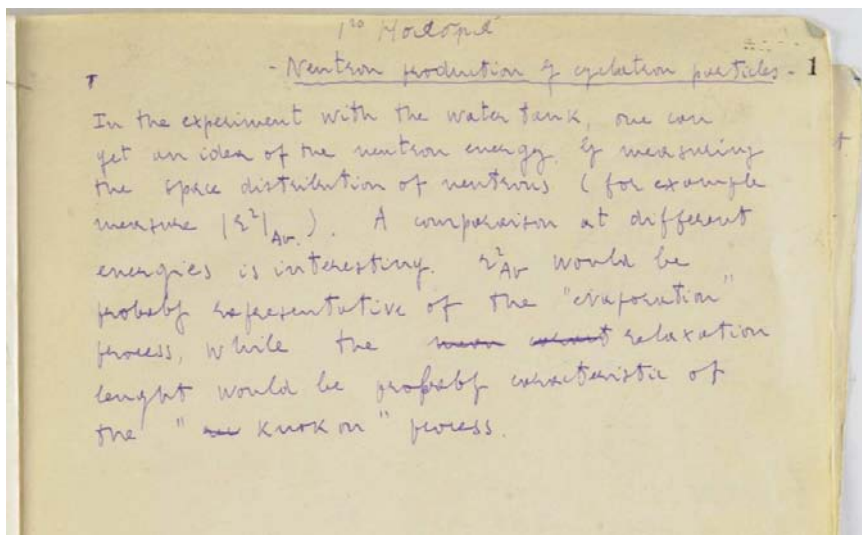 - Neutron production by cyclotron particles - 1
In the experiment with the water tank, one can
get an idea of the neutron energy, by measuring
the space distribution of neutrons (for example
measure |r²|Av.). A comparison at different
energies is interesting. r²Av would be
probably representative of the "evaporation"
process, while the relaxation
lenght would be probably caracteristic of
the " knok on " process.